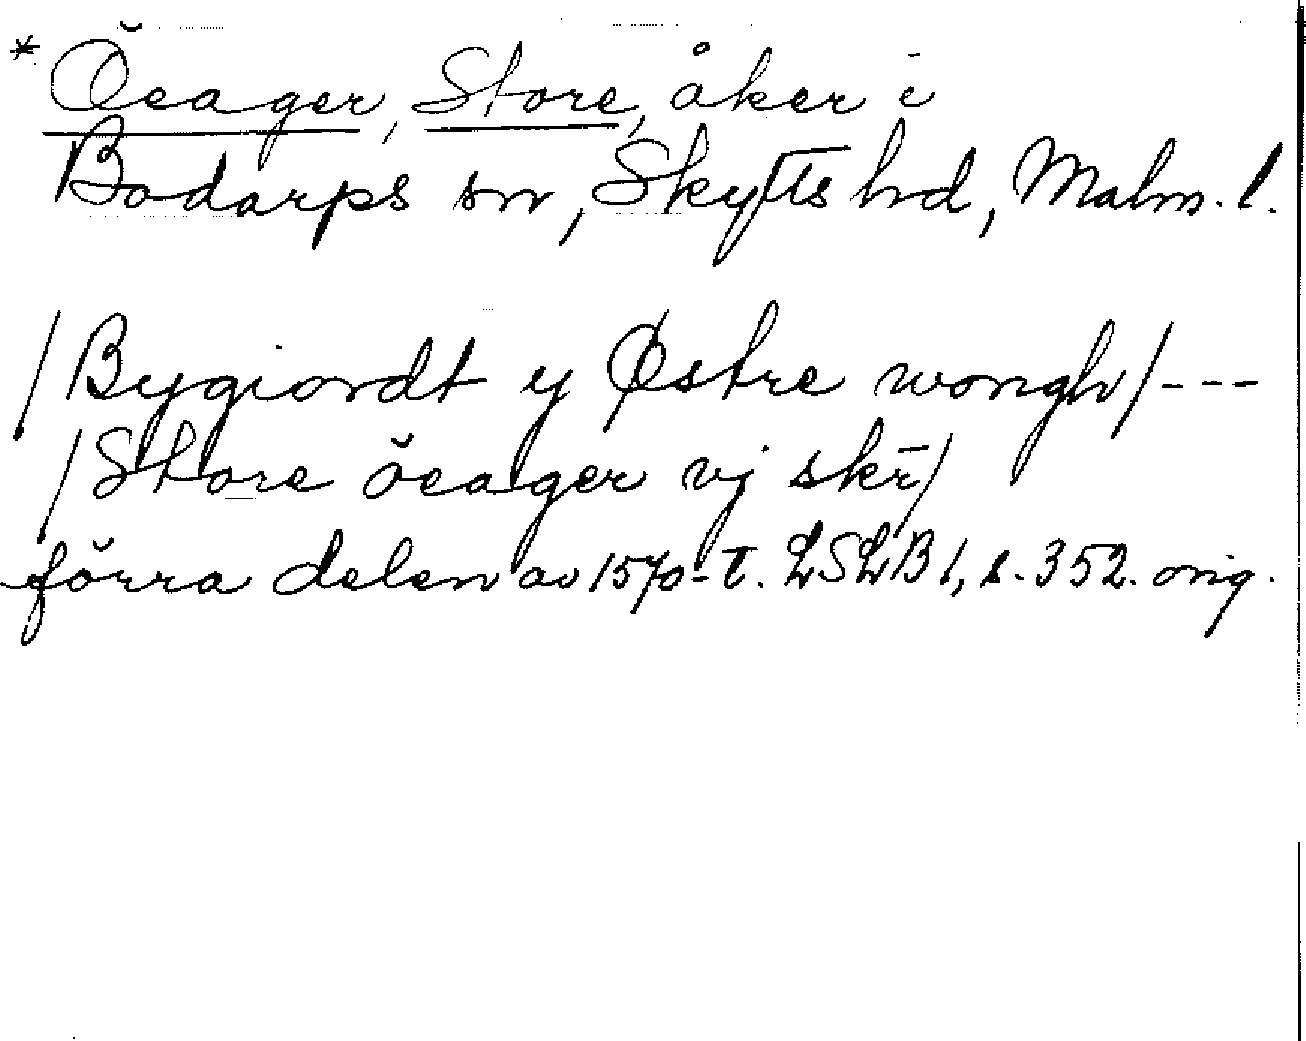 * Öeager, Store, åker i
Bodarps sn, Skytts hd, Malm. l.
/Bygiordt y Østre wongh/---
/Store öeager vj skr̄/
förra delen av 1570-t. LSLB 1, s. 352. orig.